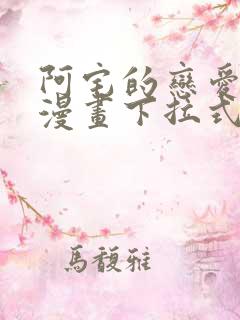 阿宅的戀愛
漫畫下拉式
馬馥雅